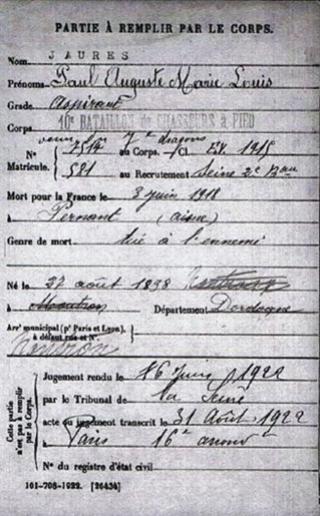 PARTIE À REMPLIR PAR LE CORPS.
Nom JAURÈS
Prénoms Paul Auguste Marie Louis
Grade aspirant
Corps 10e BATAILLON de CHASSEURS à PIED
venu du 7e dragons
N° Matricule. { 7514 au Corps. — Cl. EV 1915
581 au Recrutement Seine 2e Bau
Mort pour la France le 3 juin 1918
à Pernant (aisne)
Genre de mort tué à l'ennemi
Né le 27 août 1898
à Département Dordogne
Arrt municipal (pr Paris et Lyon),
à défaut rue et N°.
Cette partie n'est pas à remplir par le Corps.
Jugement rendu le 16 Juin 1922
par le Tribunal de la Seine
acte ou jugement transcrit le 31 Août 1922
à Paris 16e arrond
N° du registre d'état civil
101-708-1922. [26434]